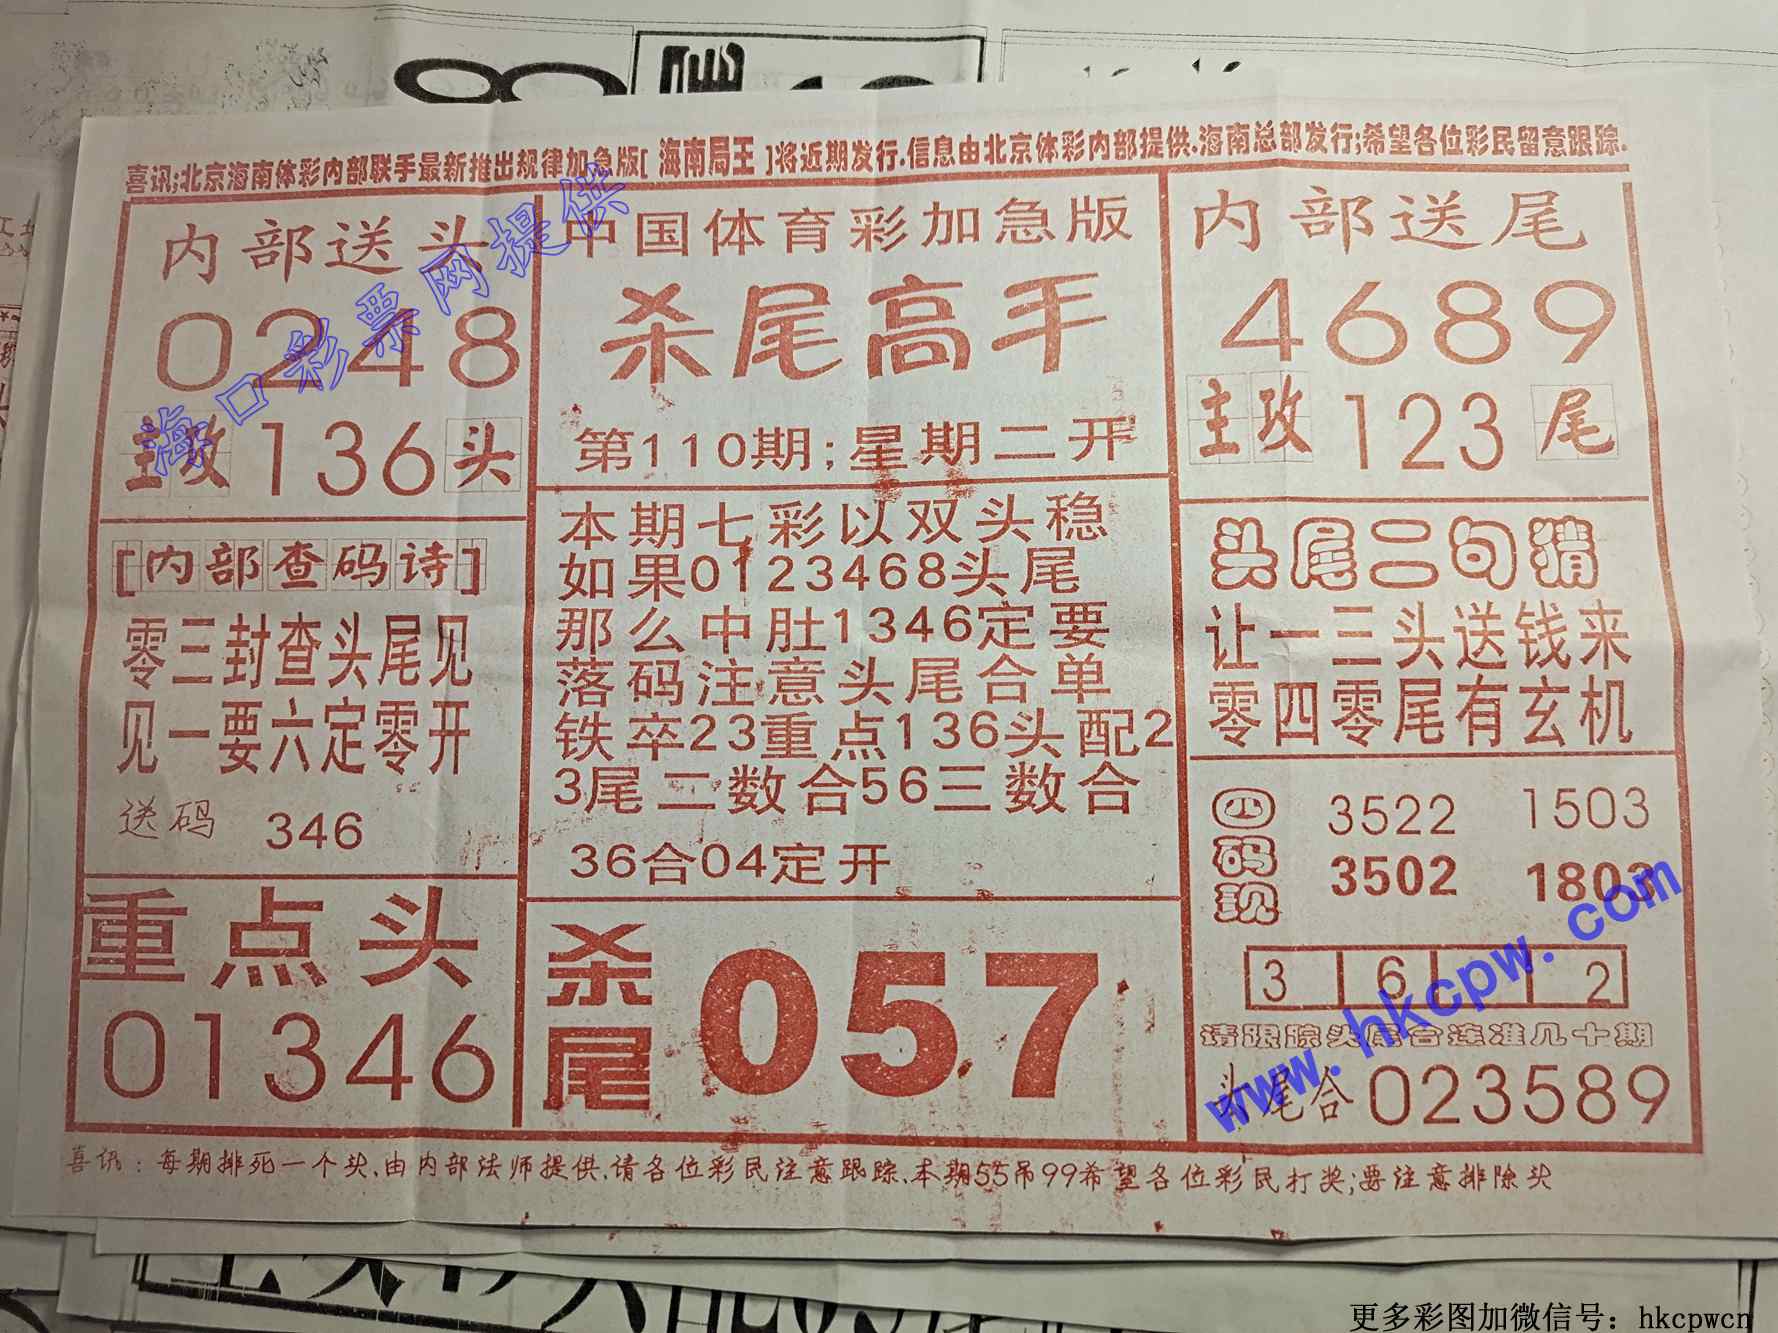 喜讯;北京海南体彩内部联手最新推出规律加急版[海南局王]将近期发行.信息由北京体彩内部提供.海南总部发行;希望各位彩民留意跟踪.
内部送头
0248
主攻136头
[内部查码诗]
零三封查头尾见
见一要六定零开
送码 346
重点头
01346
中国体育彩加急版
杀尾高手
第110期;星期二开
本期七彩以双头稳
如果0123468头尾
那么中肚1346定要
落码注意头尾合单
铁卒23重点136头配2
3尾二数合56三数合
36合04定开
杀尾 057
内部送尾
4689
主攻123尾
头尾二句猜
让一三头送钱来
零四零尾有玄机
四码现
3522 1503
3502 1803
3 6 2
请跟踪头尾合连准几十期
头尾合023589
喜讯:每期排死一个头.由内部法师提供.请各位彩民注意跟踪.本期55吊99希望各位彩民打奖;要注意排除头
海口彩票网提供
www.hkcpw.com
更多彩图加微信号:hkcpwcn